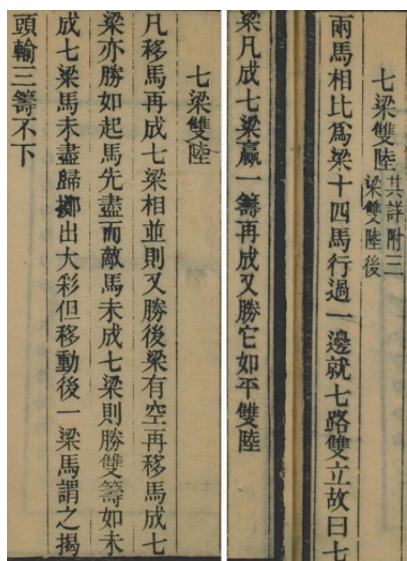 七梁雙陸 其詳附三
梁雙陸後
兩馬相比爲梁十四馬行過一邊就七路雙立故曰七
梁凡成七梁贏一籌再成又勝它如平雙陸
七梁雙陸
凡移馬再成七梁相並則又勝後梁有空再移馬成七
梁亦勝如起馬先盡而敵馬未成七梁則勝雙籌如未
成七梁馬未盡歸擲出大彩但移動後一梁馬謂之揭
頭輸三籌不下